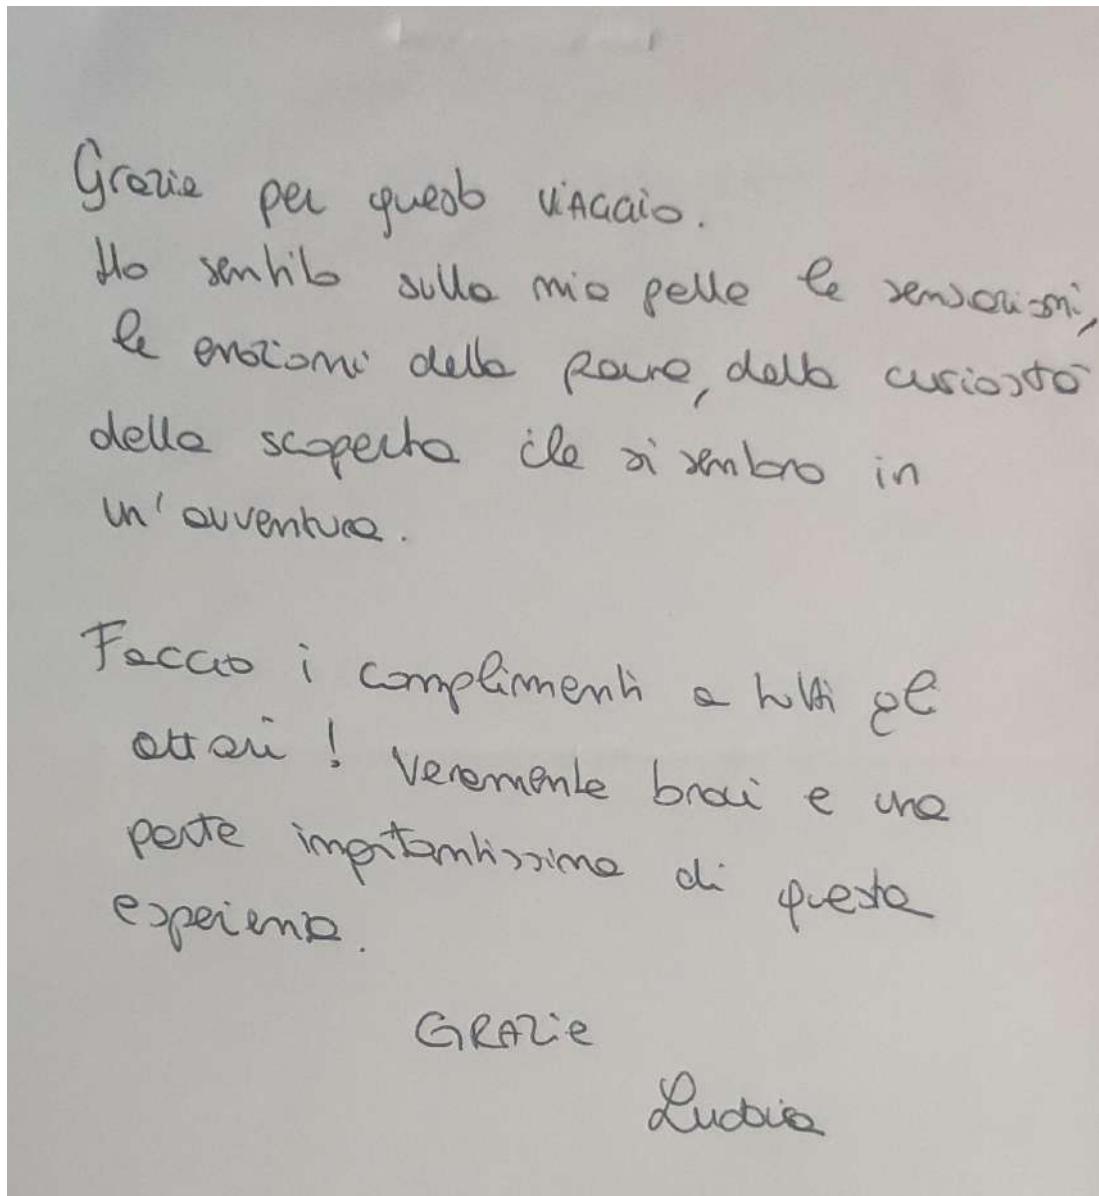 Grazie per questo viAGGio.
Ho sentito sulla mia pelle le sensazioni,
le emozioni della paura, della curiosità
della scoperta che si sembra in
un'avventura.
Faccio i complimenti a tutti gli
attori! Veramente bravi e una
parte importantissima di questa
esperienza.
GRAZie